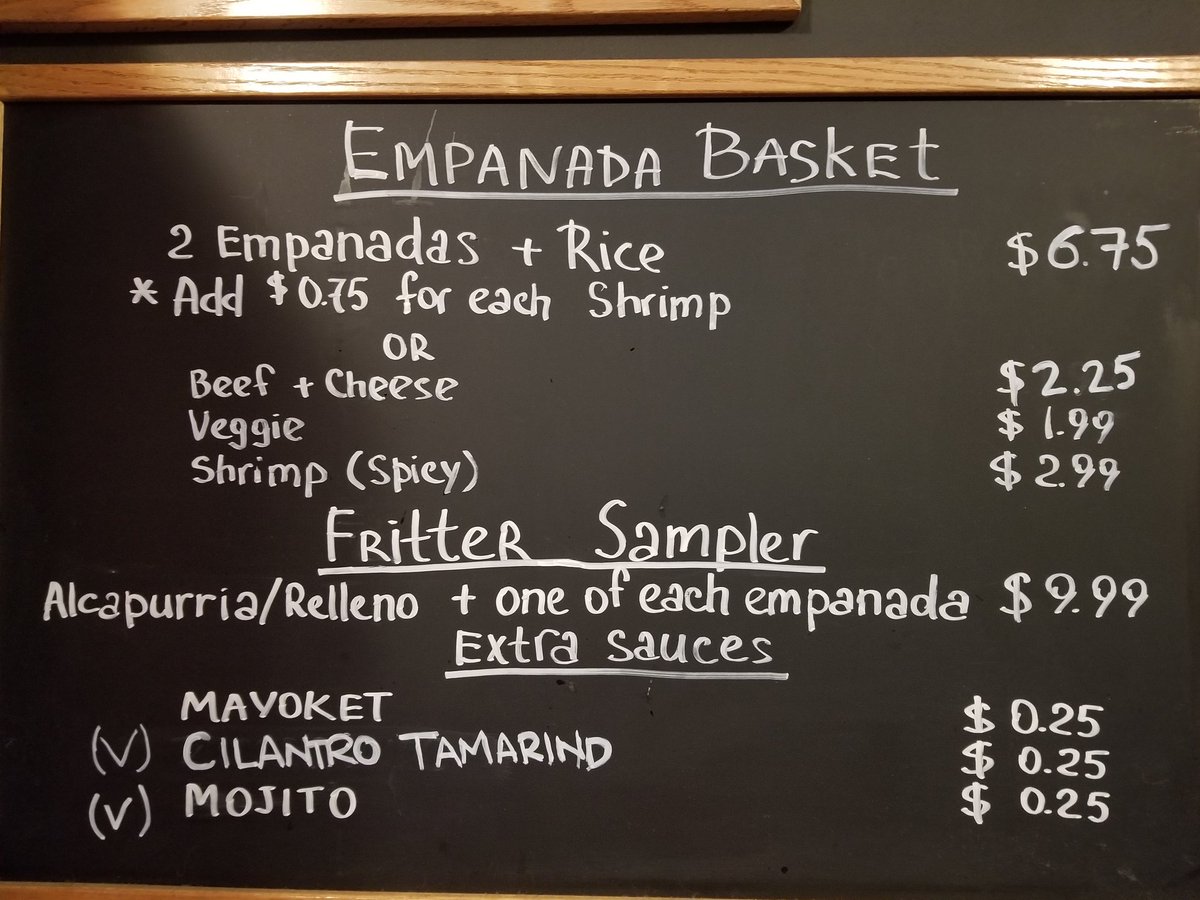 EMPANADA BASKET
2 Empanadas + Rice $6.75
* Add $0.75 for each Shrimp
OR
Beef + Cheese $2.25
Veggie $1.99
Shrimp (Spicy) $2.99
FRittER Sampler
Alcapurria/Relleno + one of each empanada $9.99
Extra sauces
MAYOKET $0.25
(V) CILANTRO TAMARIND $0.25
(V) MOJITO $0.25